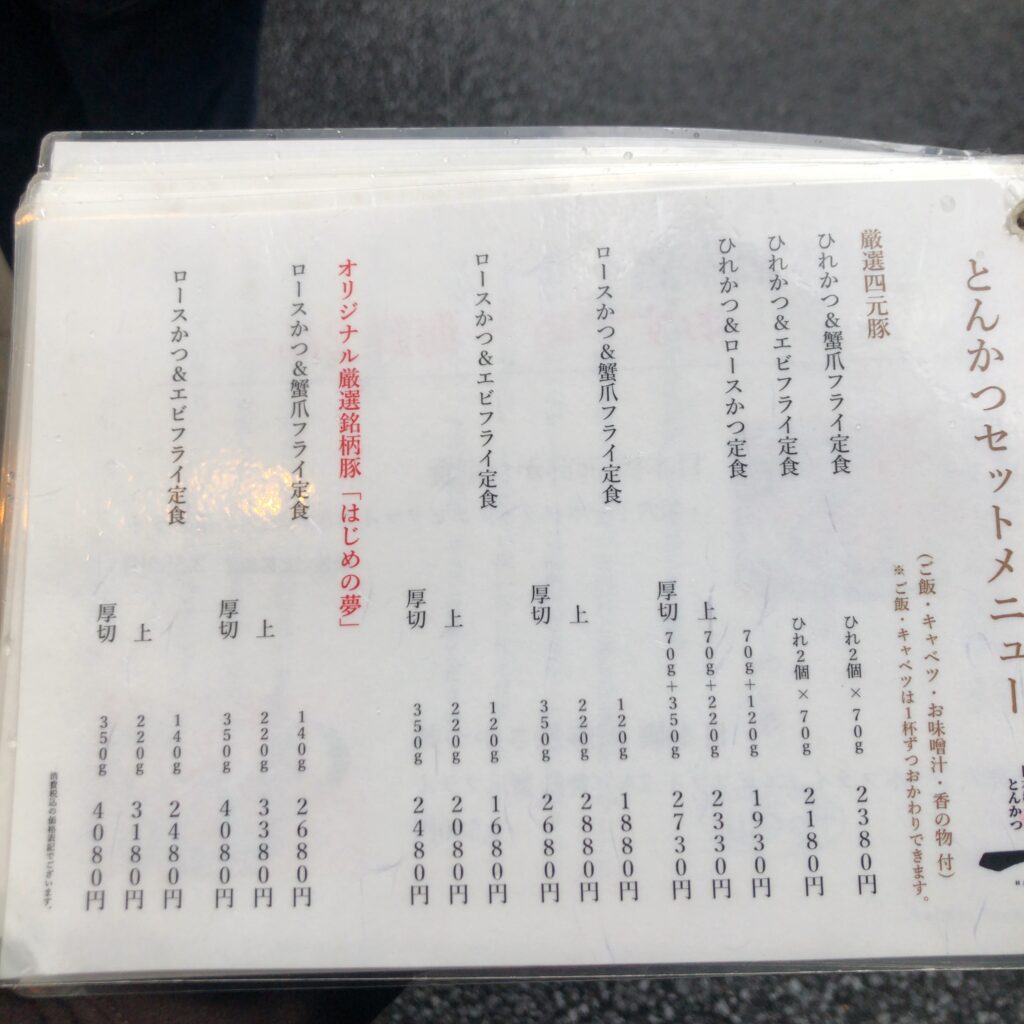 とんかつ
とんかつセットメニュー
(ご飯・キャベツ・お味噌汁・香の物 付)
※ご飯・キャベツは1杯ずつおかわりできます。
厳選四元豚
ひれかつ&蟹爪フライ定食 ひれ2個×70g 2380円
ひれかつ&エビフライ定食 ひれ2個×70g 2180円
ひれかつ&ロースかつ定食 70g+120g 1930円
上 70g+220g 2330円
厚切 70g+350g 2730円
ロースかつ&蟹爪フライ定食 120g 1880円
上 220g 2880円
厚切 350g 2680円
ロースかつ&エビフライ定食 120g 1680円
上 220g 2080円
厚切 350g 2480円
オリジナル厳選銘柄豚「はじめの夢」
ロースかつ&蟹爪フライ定食 140g 2680円
上 220g 3380円
厚切 350g 4080円
ロースかつ&エビフライ定食 140g 2480円
上 220g 3180円
厚切 350g 4080円
消費税込の価格表記でございます。